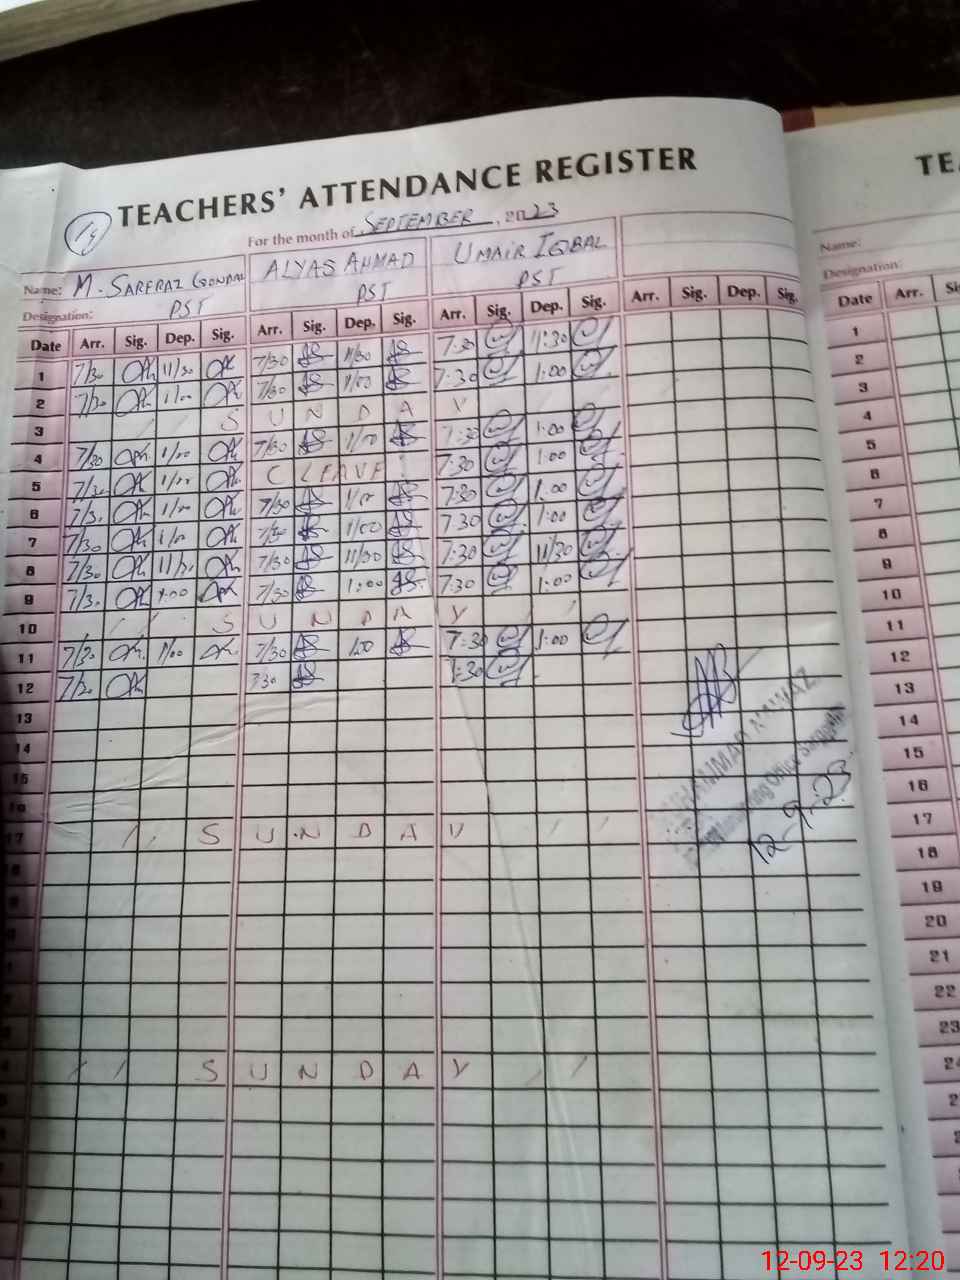 TEACHERS' ATTENDANCE REGISTER
19
For the month of SEPTEMBER, 2023
Name: M. SARFRAZ GONDAL ALYAS AHMAD UMAIR IQBAL
Designation: PST PST PST
Date Arr. Sig. Dep. Sig. Arr. Sig. Dep. Sig. Arr. Sig. Dep. Sig. Arr. Sig. Dep. Sig.
1 7/30 11/30 7/30 11/30 7:30 11:30
2 7/30 1/00 7/30 1/00 7:30 1:00
3 / / S U N D A Y / /
4 7/30 1/00 7/30 1/00 7:30 1:00
5 7/30 1/00 C LEAVE 7:30 1:00
6 7/30 1/00 7/30 1/00 7:30 1:00
7 7/30 1/00 7/30 1/00 7:30 1:00
8 7/30 11/30 7/30 11/30 7:30 11/30
9 7/30 1:00 7/30 1:00 7:30 1:00
10 / / S U N D A Y / /
11 7/30 1/00 7/30 1:00 7:30 1:00
12 7/30 7 30 7:30
13
14
15
16
17 / / S U N D A Y / /
/ / S U N D A Y / /
12-9-23
TEA
Name:
Designation:
Date Arr. Si
1
2
3
4
5
6
7
8
9
10
11
12
13
14
15
16
17
18
19
20
21
22
23
24
12-09-23 12:20